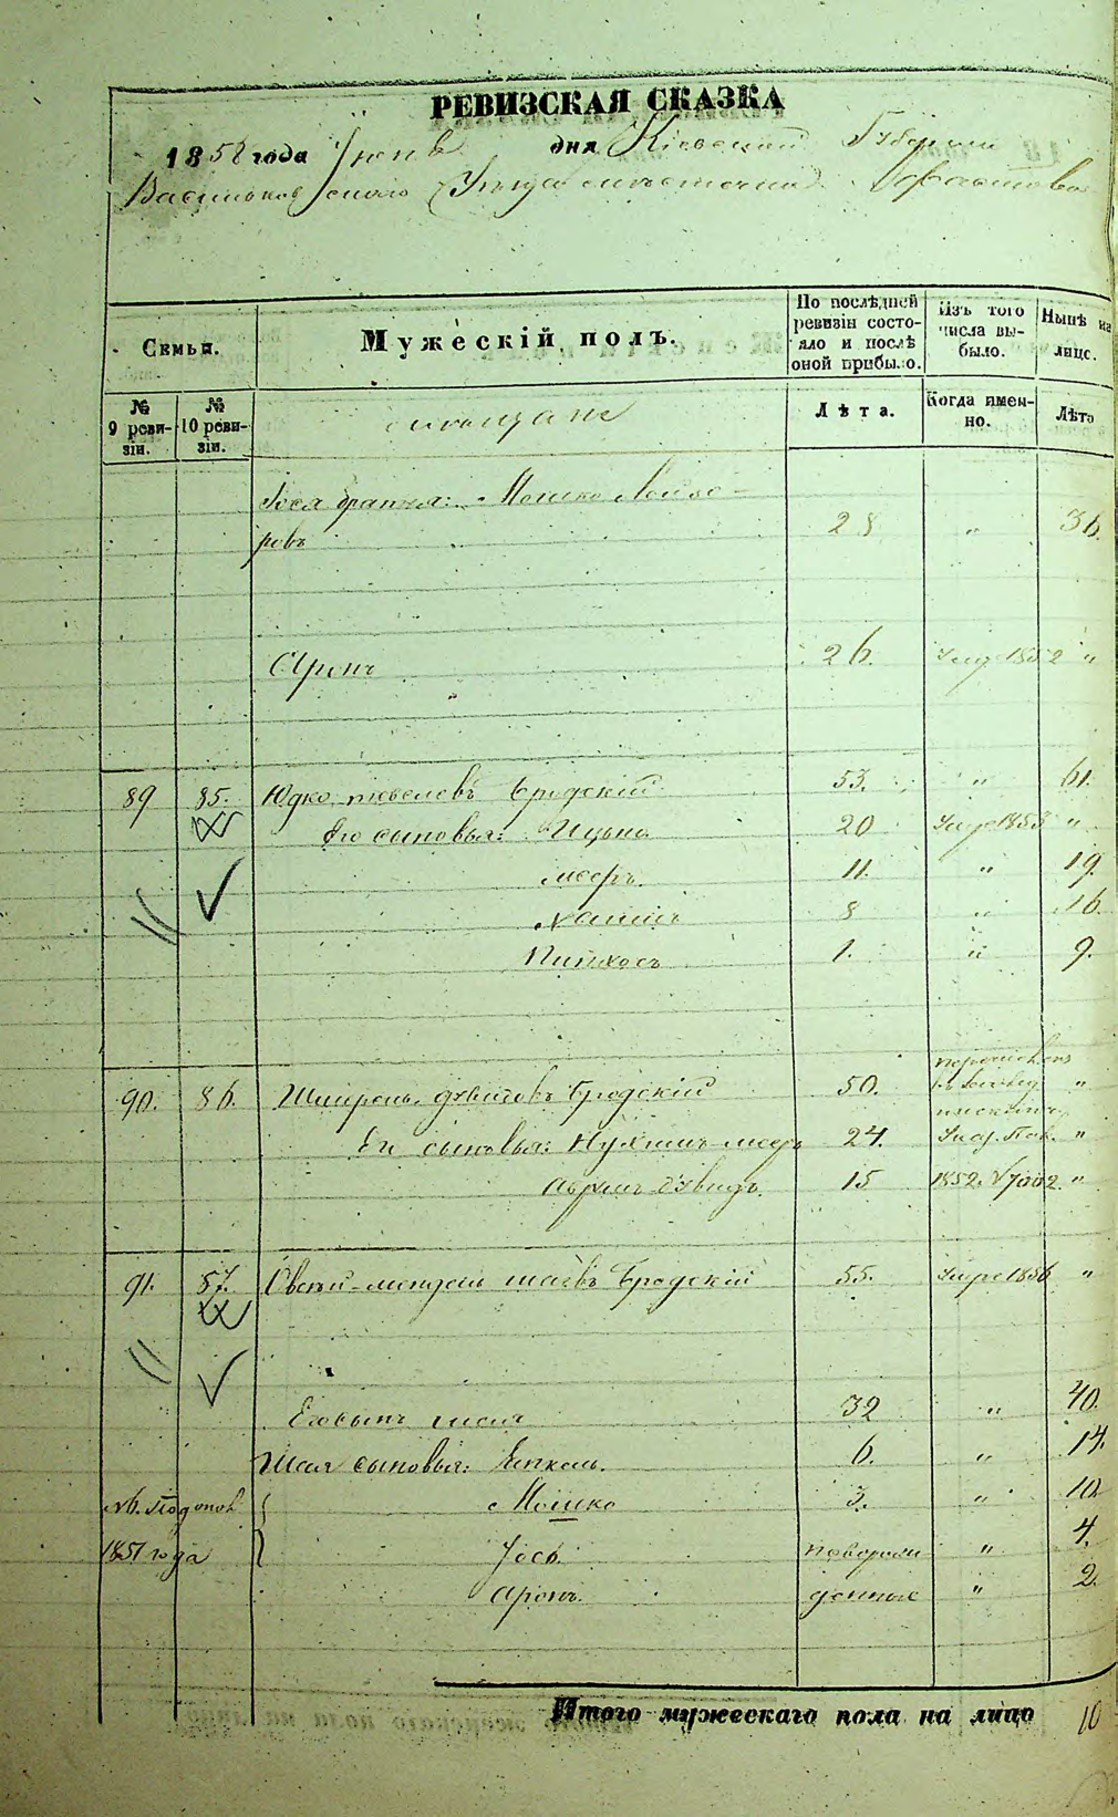 РЕВИЗСКАЯ СКАЗКА
1858 года Іюня дня Кіевской Губерніи
Васильковскаго Уѣзда мѣстечка Фастова
Семьи.
Мужескій полъ.
По послѣдней ревизіи состояло и послѣ оной прибыло.
Изъ того числа выбыло.
Нынѣ на лице.
№ 9 ревизіи.
№ 10 ревизіи.
Лѣта.
Когда именно.
Лѣта
Мошко Лейзеровъ 28 " 36.
Аронъ 26. 1852 "
89 85. Юдко Бродскій 53. " 61.
Его сыновья: Ицько 20 1853 "
Мееръ. 11. " 19.
Хаимъ 8 " 16.
Пинхосъ 1. " 9.
90. 86. Бродскій 50. "
Его сыновья: Нухимъ-Меер 24. "
Аврумъ-Дувидъ. 15 1852. "
91. 87. Овсѣй-Мендель Шаевъ Бродскій 55. 1856 "
Его сынъ Шая 32 " 40.
Шая сыновья: Янкель. 6. " 14.
Мошко 3. " 10
1851 года Іось. новорож " 4.
Аронъ. денные " 2.
Итого мужескаго пола на лицо 10